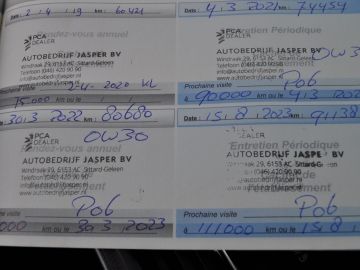 Date : 2.4.19 km 60421
PCA
DEALER
AUTOBEDRIJF JASPER BV
Windraak 29, 6153 AC Sittard-Geleen
Telefoon (046) 420 90 90
info@autobedrijfjasper.nl
www.autobedrijfjasper.nl
2-4-2020
15000 km ou le
Date : 4.3.2021 km : 74454
Entretien Périodique
AUTOBEDRIJF JASPER BV
Windraak 29, 6153 AC Sittard-Geleen
Telefoon (046) 420 90 90
info@autobedrijfjasper.nl
www.autobedrijfjasper.nl
Prochaine visite Pob
à 90000 km ou le 4.3.202
Date : 30.3 2022 km : 80680
PCA
DEALER
Rendez-vous annuel
OW30
AUTOBEDRIJF JASPER BV
Windraak 29, 6153 AC Sittard-Geleen
Telefoon (046) 420 90 90
info@autobedrijfjasper.nl
www.autobedrijfjasper.nl
Prochaine visite Pob
km ou le 30 3 2023
Date : 15.8.2023 km : 9138
DEALER
OW30
Entretien Périodique
AUTOBEDRIJF JASPER BV
Windraak 29, 6153 AC Sittard-G
(046) 420 90 90
info@autobedrijfjasper.nl
www.autobedrijfjasper.nl
Prochaine visite Pob
à 111000 km ou le 15.8.